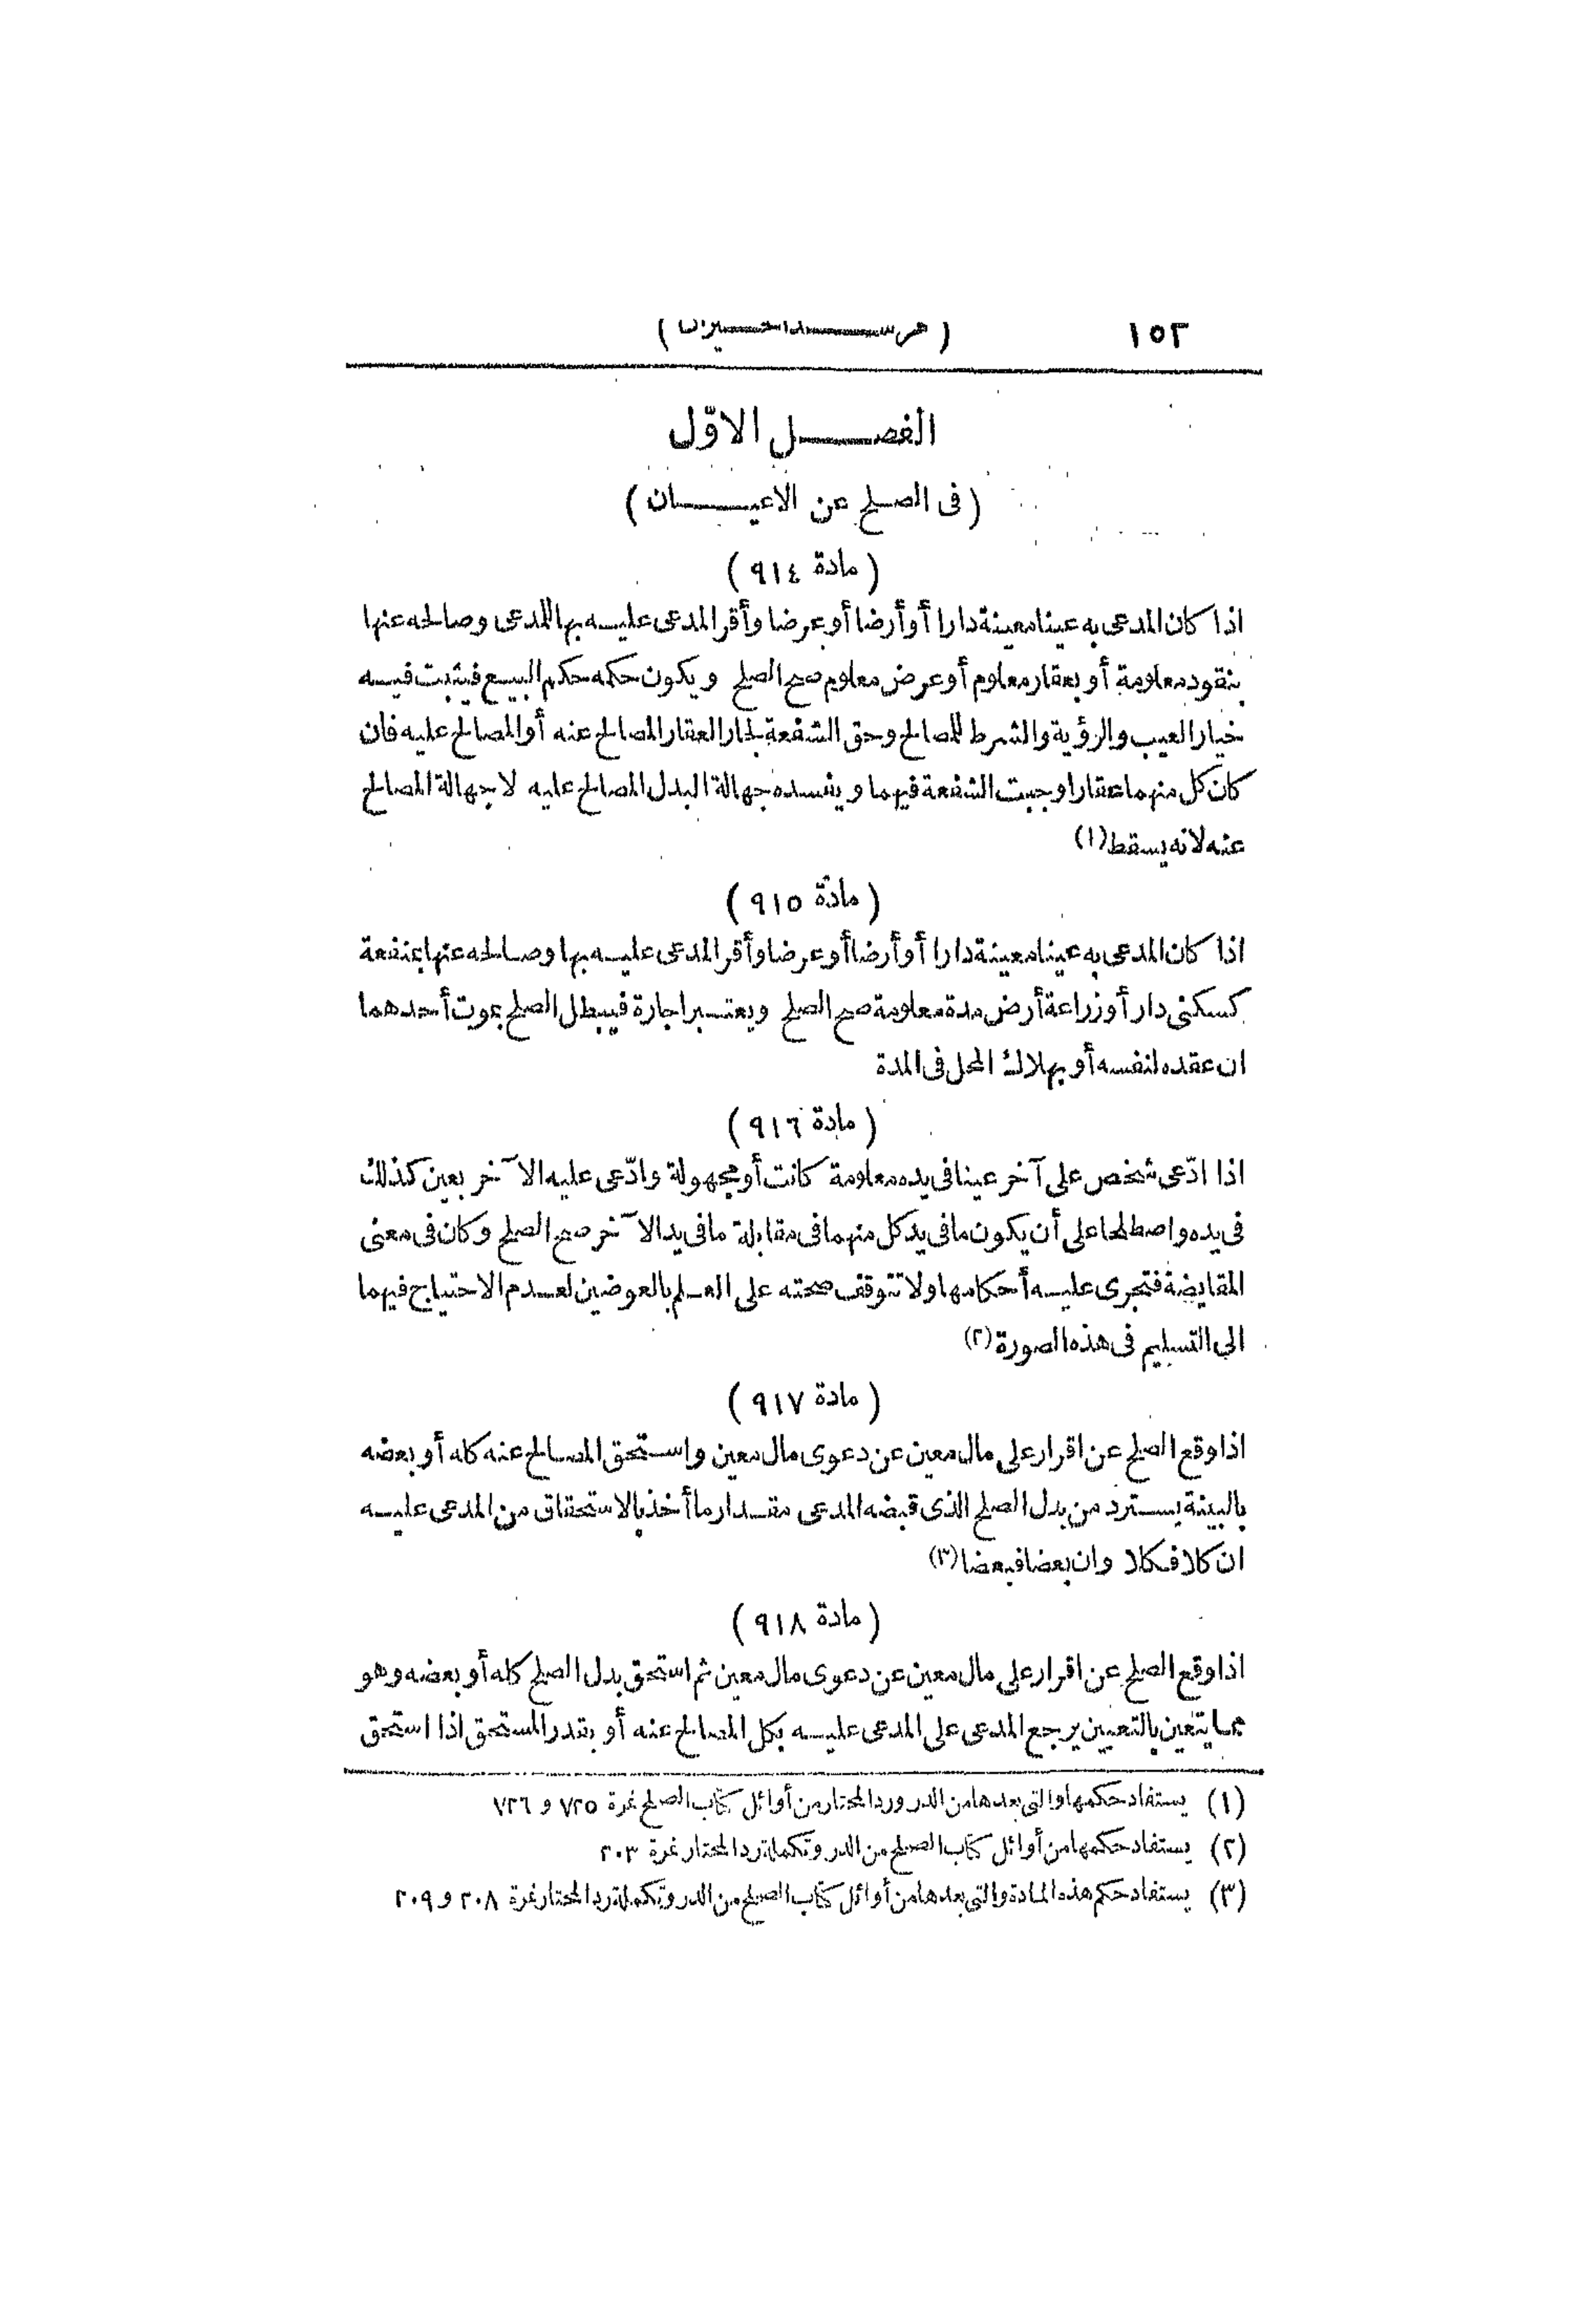 ١٥٢ (مرشد الحيران)
الفصل الاوّل
(فى الصلح عن الاعيان)
(مادة ٩١٤)
اذا كان المدعى به عينا معينة دارا أو أرضا أو عرضا وأقر المدعى عليه بها للمدعى وصالحه عنها
بنقود معلومة أو بعقار معلوم أو عرض معلوم صح الصلح ويكون حكمه حكم البيع فيثبت فيه
خيار العيب والرؤية والشرط للمصالح وحق الشفعة لجار العقار المصالح عنه أو المصالح عليه فان
كان كل منهما عقارا وجبت الشفعة فيهما ويفسده جهالة البدل المصالح عليه لا جهالة المصالح
عنه لانه يسقط (١)
(مادة ٩١٥)
اذا كان المدعى به عينا معينة دارا أو أرضا أو عرضا وأقر المدعى عليه بها وصالحه عنها بمنفعة
كسكنى دار أو زراعة أرض مدة معلومة صح الصلح ويعتبر اجارة فيبطل الصلح بموت أحدهما
ان عقده لنفسه أو بهلاك المحل فى المدة
(مادة ٩١٦)
اذا ادّعى شخص على آخر عينا فى يده معلومة كانت أو مجهولة وادّعى عليه الآخر بعين كذلك
فى يده واصطلحا على أن يكون ما فى يد كل منهما فى مقابلة ما فى يد الآخر صح الصلح وكان فى معنى
المقايضة فتجرى عليه أحكامها ولا تتوقف صحته على العلم بالعوضين لعدم الاحتياج فيهما
الى التسليم فى هذه الصورة (٢)
(مادة ٩١٧)
اذا وقع الصلح عن اقرار على مال معين عن دعوى مال معين واستحق المصالح عنه كله أو بعضه
بالبينة يسترد من بدل الصلح الذى قبضه المدعى مقدار ما أخذ بالاستحقاق من المدعى عليه
ان كلا فكلا وان بعضا فبعضا (٣)
(مادة ٩١٨)
اذا وقع الصلح عن اقرار على مال معين عن دعوى مال معين ثم استحق بدل الصلح كله أو بعضه وهو
مما يتعين بالتعيين يرجع المدعى على المدعى عليه بكل المصالح عنه أو بقدر المستحق اذا استحق
(١) يستفاد حكمها والتى بعدها من الدر ورد المحتار من أوائل كتاب الصلح نمرة ٧٢٥ و ٧٢٦
(٢) يستفاد حكمها من أوائل كتاب الصلح من الدر وتكملة رد المحتار نمرة ٢٠٣
(٣) يستفاد حكم هذه المادة والتى بعدها من أوائل كتاب الصلح من الدر وتكملة رد المحتار نمرة ٢٠٨ و ٢٠٩